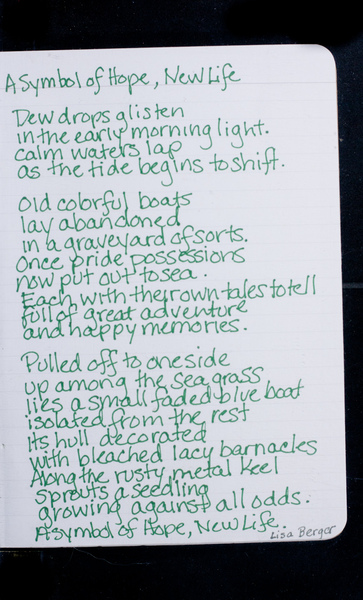 A Symbol of Hope, New Life
Dew drops glisten
in the early morning light.
calm waters lap
as the tide begins to shift.
Old colorful boats
lay abandoned
in a graveyard of sorts.
Once pride possessions
now put out to sea.
Each with their own tales to tell
full of great adventure
and happy memories.
Pulled off to one side
up among the sea grass
lies a small faded blue boat
isolated from the rest
Its hull decorated
with bleached lacy barnacles
Along the rusty metal keel
sprouts a seedling
growing against all odds.
A symbol of Hope, New Life.
Lisa Berger